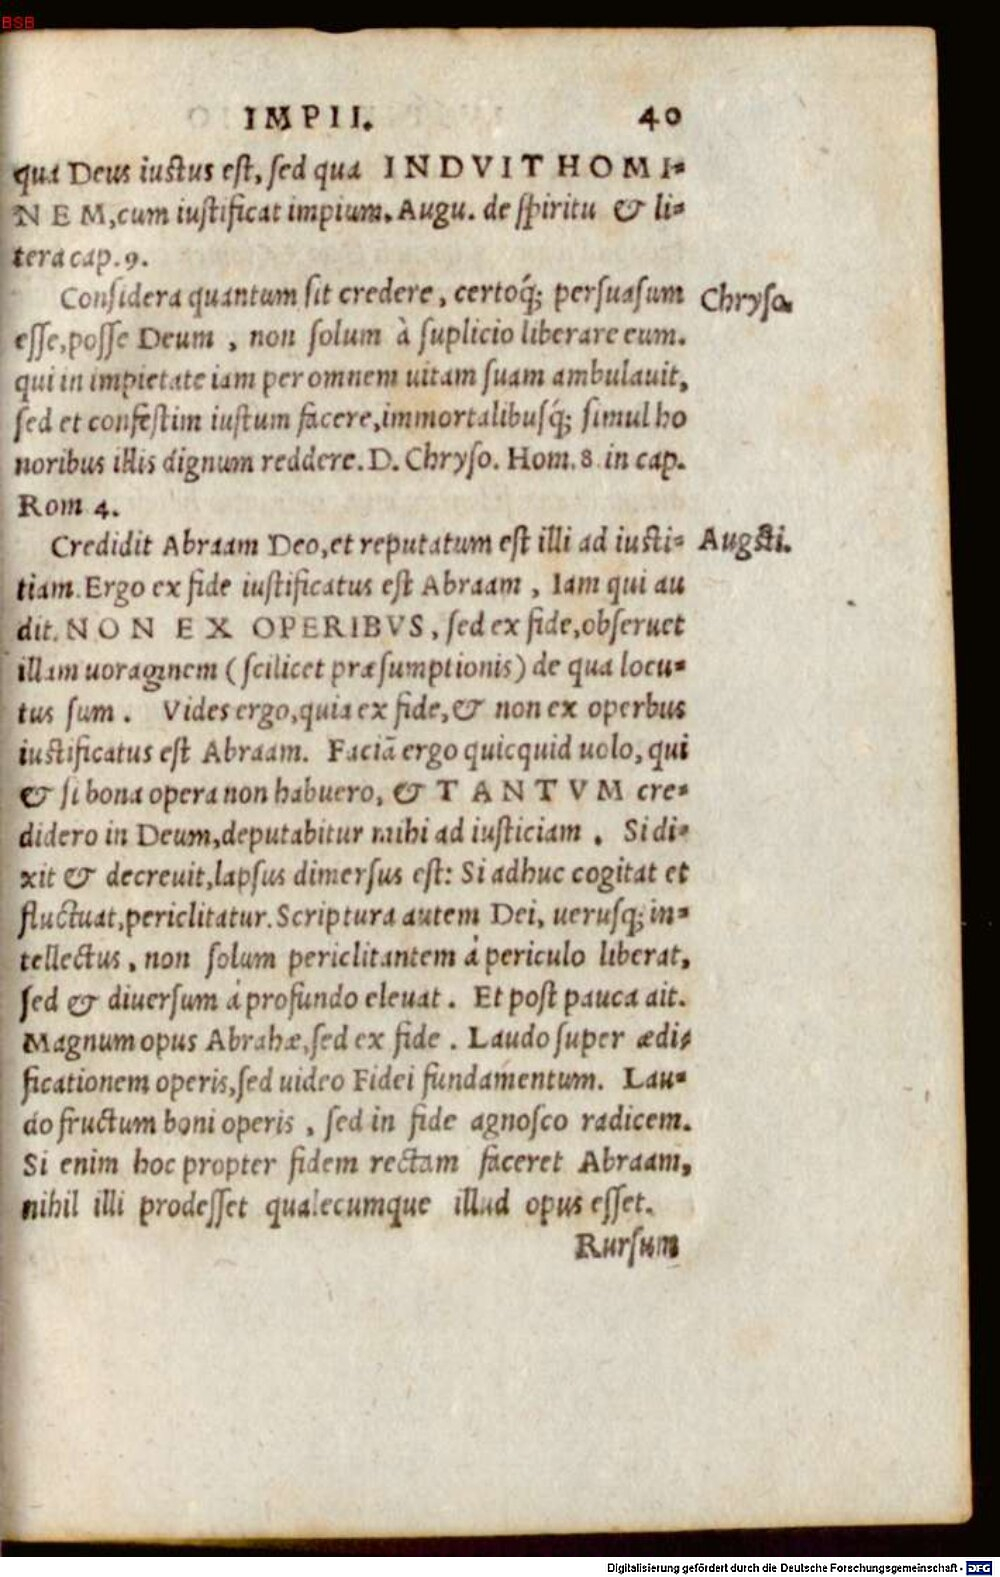 BSB
IMPII. 40
qua Deus iustus est, sed qua INDVIT HOMI-
NEM, cum iustificat impium. Augu. de spiritu & li-
tera cap. 9.
Considera quantum sit credere, certoq́; persuasum
Chryso.
esse, posse Deum, non solum à suplicio liberare eum.
qui in impietate iam per omnem uitam suam ambulauit,
sed et confestim iustum facere, immortalibusq́; simul ho
noribus illis dignum reddere. D. Chryso. Hom. 8 in cap.
Rom 4.
Credidit Abraam Deo, et reputatum est illi ad iusti-
Augsti.
tiam. Ergo ex fide iustificatus est Abraam, Iam qui au
dit. NON EX OPERIBVS, sed ex fide, obseruet
illam uoraginem (scilicet præsumptionis) de qua locu-
tus sum. Vides ergo, quia ex fide, & non ex operbus
iustificatus est Abraam. Faciā ergo quicquid uolo, qui
& si bona opera non habuero, & TANTVM cre-
didero in Deum, deputabitur mihi ad iusticiam. Si di-
xit & decreuit, lapsus dimersus est: Si adhuc cogitat et
fluctuat, periclitatur. Scriptura autem Dei, uerusq; in-
tellectus, non solum periclitantem á periculo liberat,
sed & diuersum á profundo eleuat. Et post pauca ait.
Magnum opus Abrahæ, sed ex fide. Laudo super ædi-
ficationem operis, sed uideo Fidei fundamentum. Lau-
do fructum boni operis, sed in fide agnosco radicem.
Si enim hoc propter fidem rectam faceret Abraam,
nihil illi prodesset qualecumque illud opus esset.
Rursum
Digitalisierung gefördert durch die Deutsche Forschungsgemeinschaft - DFG